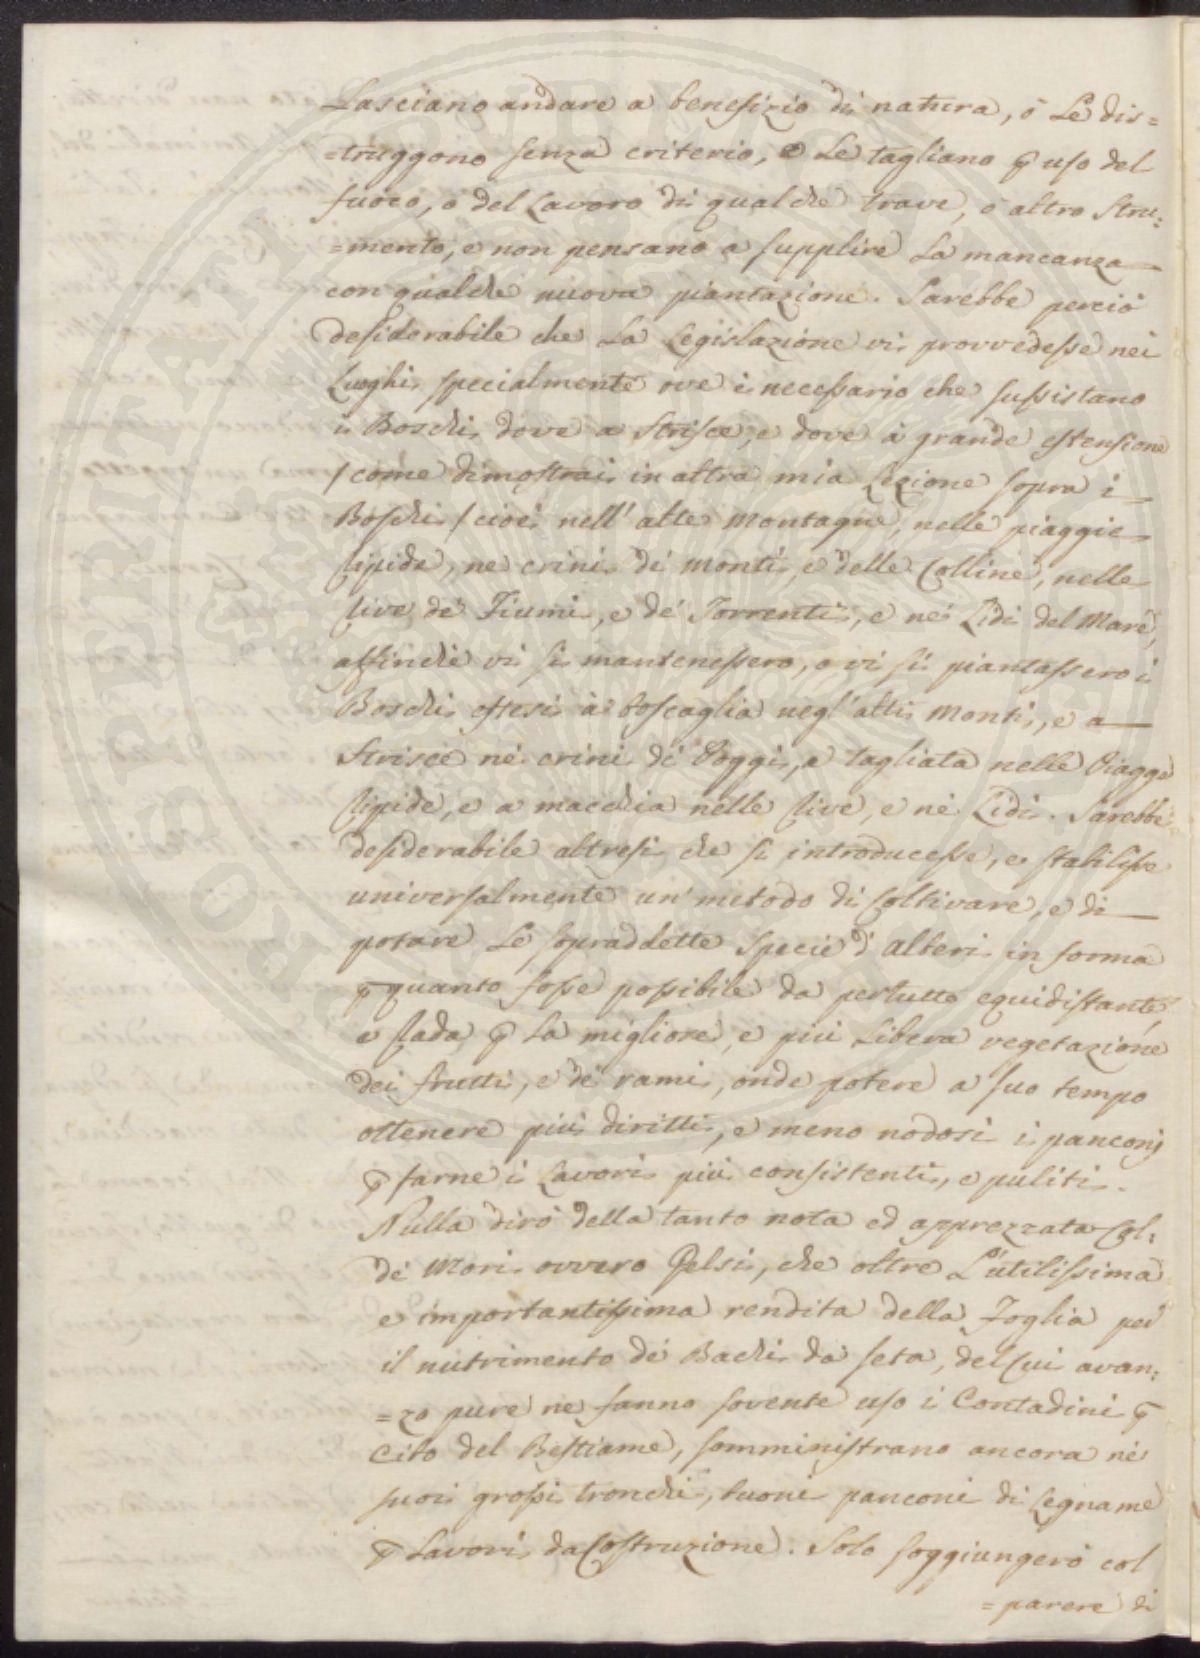 Lasciano andare a benefizio di natura, ò Le dis=
=truggono senza criterio, o Le tagliano p uso del
fuoco, o del Lavoro di qualche trave, ò altro stru=
=mento, e non pensano a supplire La mancanza
con qualche nuova piantazione. Sarebbe perciò
desiderabile che La Legislazione vi provvedesse nei
Luoghi specialmente ove è necessario che sussistano
i Boschi, dove a strisce, e dove à grande estensione
/ come dimostrai in altra mia Lezione sopra i
Boschi / cioè nell' alte Montagne, nelle piaggie
ripide, ne crini de monti, e delle Colline, nelle
rive de' Fiumi, e de' Torrenti, e ne' Lidi del Mare,
affinchè vi si mantenessero, o vi si piantassero i
Boschi estesi à boscaglia negl' alti Monti, e a
strisce ne' crini de' Poggi, e tagliata nelle Piagge
ripide, e a macchia nelle rive, e ne' Lidi. Sarebbe
desiderabile altresi che si introducesse, e stabilisse
universalmente un' metodo di coltivare, e di
potare Le sopraddette Specie d' alberi in forma
p quanto fosse possibile da pertutto equidistante,
e rada p La migliore, e più Libera vegetazione
dei frutti, e de' rami, onde potere a suo tempo
ottenere più diritti, e meno nodosi i panconi
p farne i Lavori più consistenti, e puliti.
Nulla dirò della tanto nota ed apprezzata Col:
de' Mori ovvero Gelsi, che oltre L'utilissima
e importantissima rendita della Foglia per
il nutrimento de' Bachi da seta, del cui avan:
=zo pure ne fanno sovente uso i Contadini p
Cibo del Bestiame, somministrano ancora ne'
suoi grossi tronchi, buoni panconi di Legname
p Lavori da Costruzione. Solo soggiungerò col
=parere di